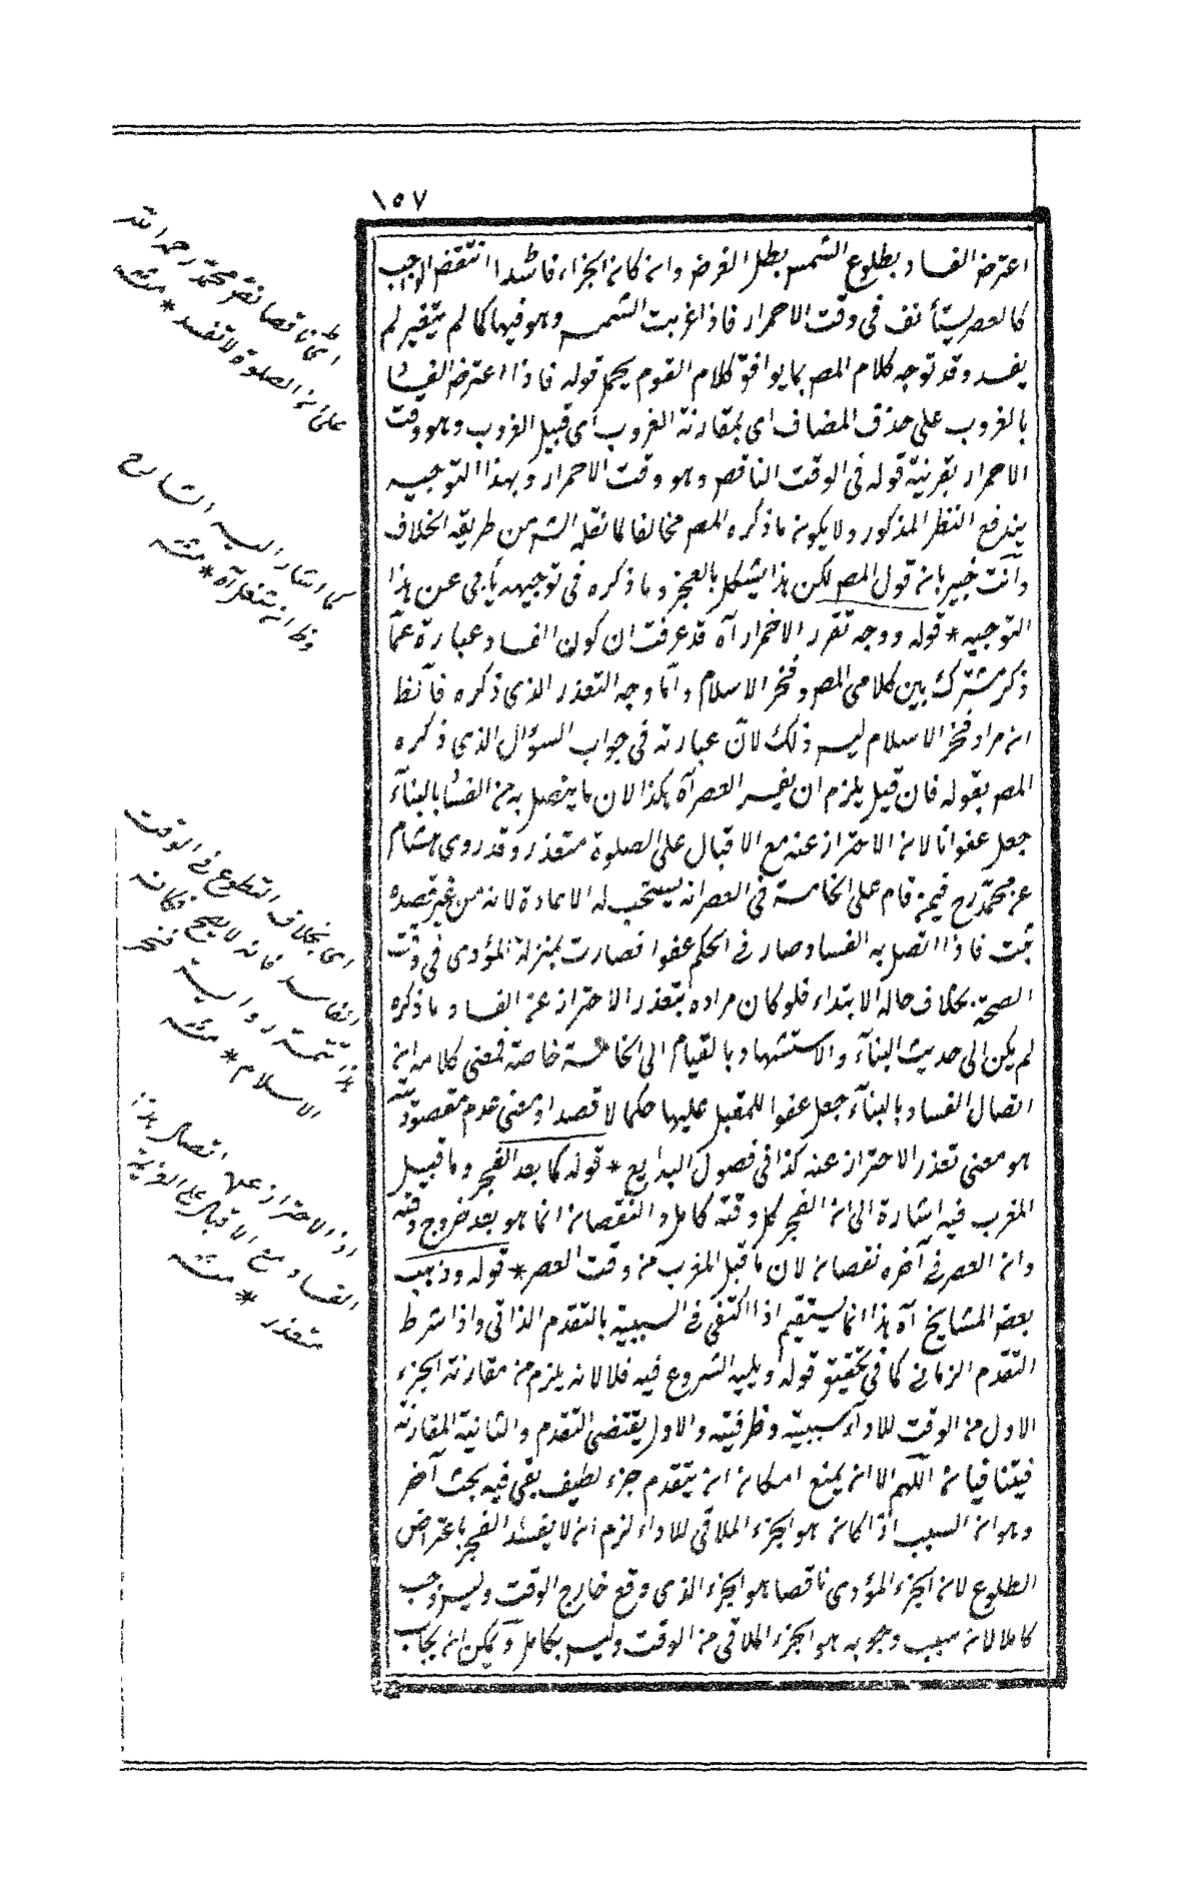 ١٥٧
اعترض الفساد بطلوع الشمس بطل الفرض وان كان الجزء فاسدا انتقض الواجب
كالعصر يستأنف فى وقت الاحمرار فاذا غربت الشمس وهو فيها كما لم يتغير لم
يفسد وقد توجه كلام المص بما يوافق كلام القوم بحمل قوله فاذا اعترض الفسا
بالغروب على حذف المضاف اى بمقارنة الغروب اى قبيل الغروب وهو وقت
الاحمرار بقرينة قوله فى الوقت الناقص وهو وقت الاحمرار وبهذا التوجيه
يندفع النظر المذكور ولا يكون ما ذكره المص مخالفا لما نقله الشم من طريقه الخلاف
وانت خبير بان قول المص لكن هذا يشكل بالفجر وما ذكره فى توجيهه يأبى عن هذا
التوجيه * قوله ووجه تقرر الاحمرار آه قد عرفت ان كون الفساد عبارة عما
ذكر مشترك بين كلامى المص وفخر الاسلام واما وجه التعذر الذى ذكره فالظ
ان مراد فخر الاسلام ليس ذلك لان عبارته فى جواب السؤال الذى ذكره
المص بقوله فان قيل يلزم ان يفسد العصر آه هكذا لان ما يتصل به من الفسا بالبناء
جعل عفوا لان الاحتراز عنه مع الاقبال على الصلوة متعذر وقد روى هشام
عن محمد رح فيمن قام على الخامسة فى العصر انه يستحب له الاعادة لانه من غير قصده
ثبت فاذا اتصل به الفساد صار فى الحكم عفوا فصارت بمنزلة المؤدى فى وقت
الصحة بخلاف حالة الابتداء فلو كان مراده بتعذر الاحتراز عن الفساد ما ذكره
لم يكن الى حديث البناء والاستشهاد بالقيام الى الخامسة خاصة فمعنى كلامه ان
اتصال الفساد بالبناء جعل عفوا للمقبل عليها حكما لا قصدا ومعنى عدم مقصوديته
هو معنى تعذر الاحتراز عنه كذا فى فصول البدايع * قوله كما بعد الفجر وما قبيل
المغرب فيه اشارة الى ان الفجر كل وقته كامل والنقصان انما هو بعد خروج وقته
وان العصر فى آخره نقصان لان ما قبل المغرب من وقت العصر * قوله وذهب
بعض المشايخ آه هذا انما يستقيم اذا اكتفى فى السببية بالتقدم الذاتى واذا شرط
التقدم الزمانى كما فى تحقيق قوله ويليه الشروع فيه فلا لانه يلزم من مقارنة الجزء
الاول من الوقت للاداء سببيته وظرفيته والاول يقتضى التقدم والثانية المقارنة
فيتنافيان اللهم الا ان يمنع امكان ان يتقدم جزء لطيف بقى فيه بحث آخر
وهو ان السبب اذا كان هو الجزء الملاقى للاداء لزم ان لا يفسد الفجر باعتراض
الطلوع لان الجزء المؤدى ناقصا هو الجزء الذى وقع خارج الوقت وليس وجب
كاملا لان سبب وجوبه هو الجزء الملاقى من الوقت وليس بكامل ويمكن ان يجاب
اى ناقصا نص محمد رحمه الله
على ان الصلوة لا تفسد * منه
كما اشار اليه الشارح
وظ ان يتنغل آه * منه
اى بخلاف التطوع فى الوقت
الفاسد فانه لا يصح فكانه
هذا تتمة رواية فخر
الاسلام * منه
اذ الاحتراز عن اتصال هذا
الفساد مع الاقبال على العزيمة
متعذر * منه